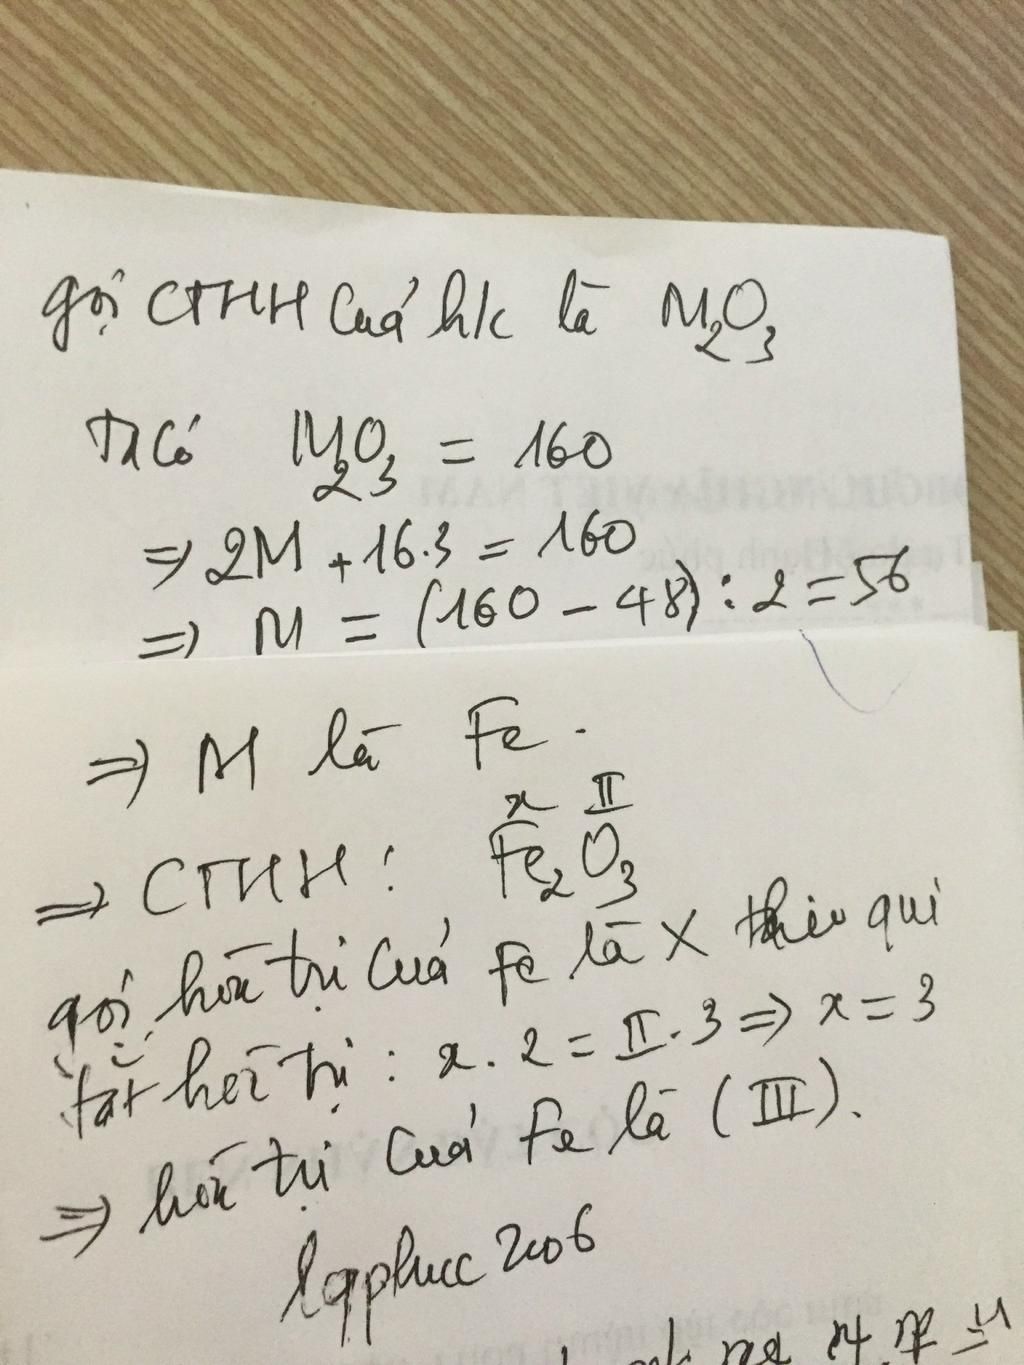 gọi CTHH của h/c là M₂O₃
Ta có M₂O₃ = 160
=> 2M + 16.3 = 160
=> M = (160 - 48) : 2 = 56
=> M là Fe.
x II
=> CTHH: Fe₂O₃
gọi hóa trị của Fe là x theo qui
tắt hóa trị: x. 2 = II. 3 => x = 3
=> hóa trị của Fe là (III).
lqphucc2006